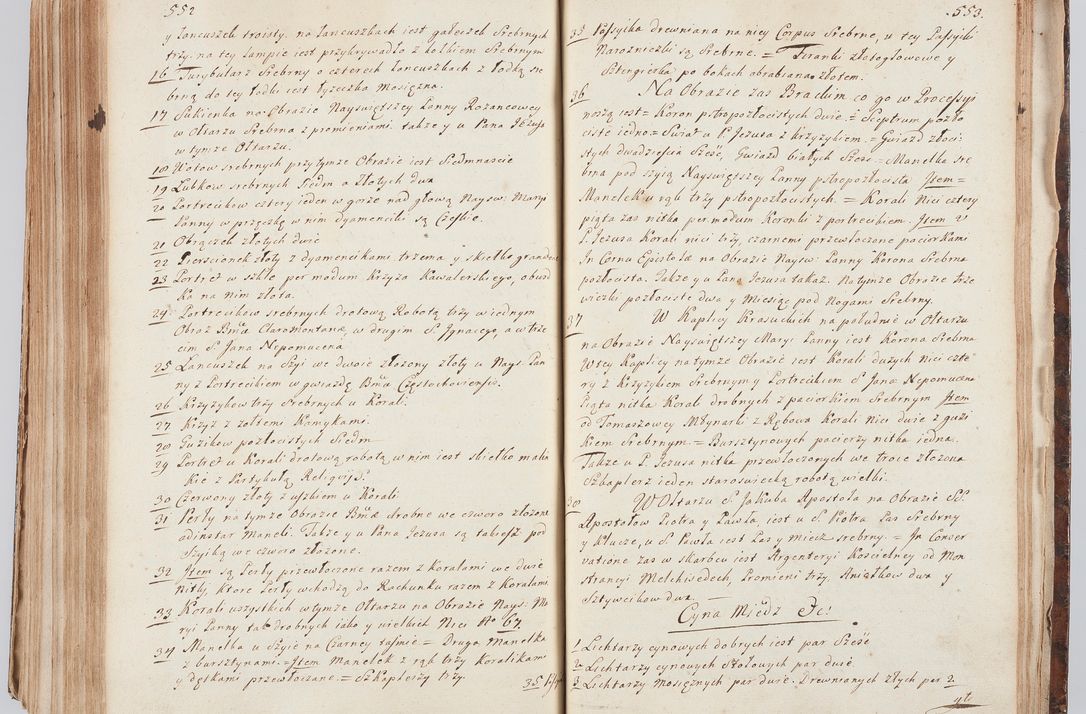 552
y Łancuszek troisty. na Łancuszkach iest gałeczek Srebrnych
trzy. na tey lampie iest przykrywadło z kołkiem Srebrnym
16 Turybularz Srebrny o czterech Łancuszkach z Łodką sre
brną do tey Łodki iest Łyzeczka Mosięzna.
17 Sukienka na Obrazie Nayswiętszey Panny Rozancowey
w Ołtarzu Srebrna z promieniami. także y u Pana Jezusa
w tymze Ołtarzu.
18 Wotow srebrnych przytymze Obrazie iest Siedmnascie
19 Lubkow srebrnych Siedm a Złotych dwa
20 Portrecikow cztery ieden w gorze nad głową Nayśw: Maryi
Panny w przęczkę w nim dyamenciki są Czeskie.
21 Obrączek złotych dwie
22 Pierscionek złoty z dyamencikami trzema y skiełko
23 Portret w szkle per modum Krzyża Kawalerskiego, obwod
ka na nim złota.
24 Portrecikow srebrnych drotową Robotą trzy w iednym
Obraz Bmæ Claromontanæ, w drugim S. Jgnacego, a w trze
cim S. Jana Nepomucena
25 Łancuszek na Szyi we dwoie złożony złoty u Nayś. Pan
ny z Portrecikiem w gwiazdę Bmæ Częstochoviensis.
26 Krzyżykow trzy Srebrnych u Korali.
27 Krzyż z żołtemi Kamykami.
28 Guzikow pozłocistych Siedm
29 Portret u Korali drotową robotą w nim iest skiełko malia
kie z Partykułą Religvijs.
30 Czerwony złoty z uszkiem u Korali
31 Perły na tymże Obrazie Bmæ drobne we czworo złożone
adinstar Maneli. Także y u Pana Jezusa są takresz pod
Szyiką we czworo złożone.
32 Jtem są Perły przewłoczone razem z Koralami we dwie
Nitki, ktore Perły wchodzą do Rachunku razem z Koralami
33 Korali wszystkich w tymże Ołtarzu na Obrazie Nayś: Ma
ryi Panny tak drobnych iako y wielkich Nici No 67.
34 Manelka u Szyie na Czarney tasmie = Druga Manelka
z bursztynami. = Jtem Manelek z rąk trzy Koralikami
y dętkami przewłoczane. = Szkaplerzy trzy.
553.
35 Passyika drewniana na niey Corpus Srebrne, u tey Passyiki
Narożniczki są Srebrne. = Firanki złotogłowowe y
po bokach obrabiana złotem.
36 Na Obrazie zas Brackim co go w Processyi
noszą iest = Koron pstropozłocistych dwie. = Sceptrum pozło
ciste iedno. = Swiat u P. Jezusa z krzyżykiem. = Gwiazd złoci
stych dwadziescia Sześć, Gwiazd białych Szesc. = Manelka sre
brna pod szyią Nayswiętszey Panny pstropozłocista Jtem =
Manelek u rąk trzy pstropozłocistych. = Korali Nici cztery
piąta zas nitka per modum Koronki z portrecikiem. Jtem u
P. Jezusa Korali nici trzy, czarnemi przewłoczone paciorkami
Jn Cornu Epistolæ na Obrazie Nayśw: Panny Korona Srebrna
pozłocista. Także y u Pana Jezusa takaż. Na tymże Obrazie trze
wiczki pozłociste dwa y Miesiąc pod Nogami Srebrny.
37 W Kaplicy Krasuckich na południe w Ołtarzu
na Obrazie Nayswiętszey Maryi Panny iest Korona Srebrna
W tey Kaplicy na tymże Obrazie iest Korali dużych Nici czte
ry z Krzyżykiem Srebrnym y Portrecikiem S. Jana Nepomucena
Piąta nitka Korali drobnych z paciorkiem Srebrnym Jtem
od Tomaszowey Młynarki z Rębowa Korali Nici dwie z guzi
kiem Srebrnym. = Bursztynowych pacierzy nitka iedna.
Także u P. Jezusa nitka przewłoczonych we troie złożona
Szkaplerz ieden staroswiecką robotą wielki.
38 W Ołtarzu S. Jakuba Apostoła na Obrazie SS.
Apostołow Piotra y Pawła, iest u S. Piotra Pas Srebrny
y Klucze, u S. Pawła iest Pas y miecz srebrny. = Jn Conser
vatione zas w skarbcu iest Argenteryi Kościelney od Mon
strancyi Melchisedech, Promieni trzy. Aniołkow dwa y
Sztywcikow dwa. —
Cyna Miedź &c:
1 Lichtarzy cynowych dobrych iest par Sześć
2 Lichtarzy cynowych Stołowych par dwie.
3 Lichtarzy Mosiężnych par dwie. Drewnianych złych par 2.